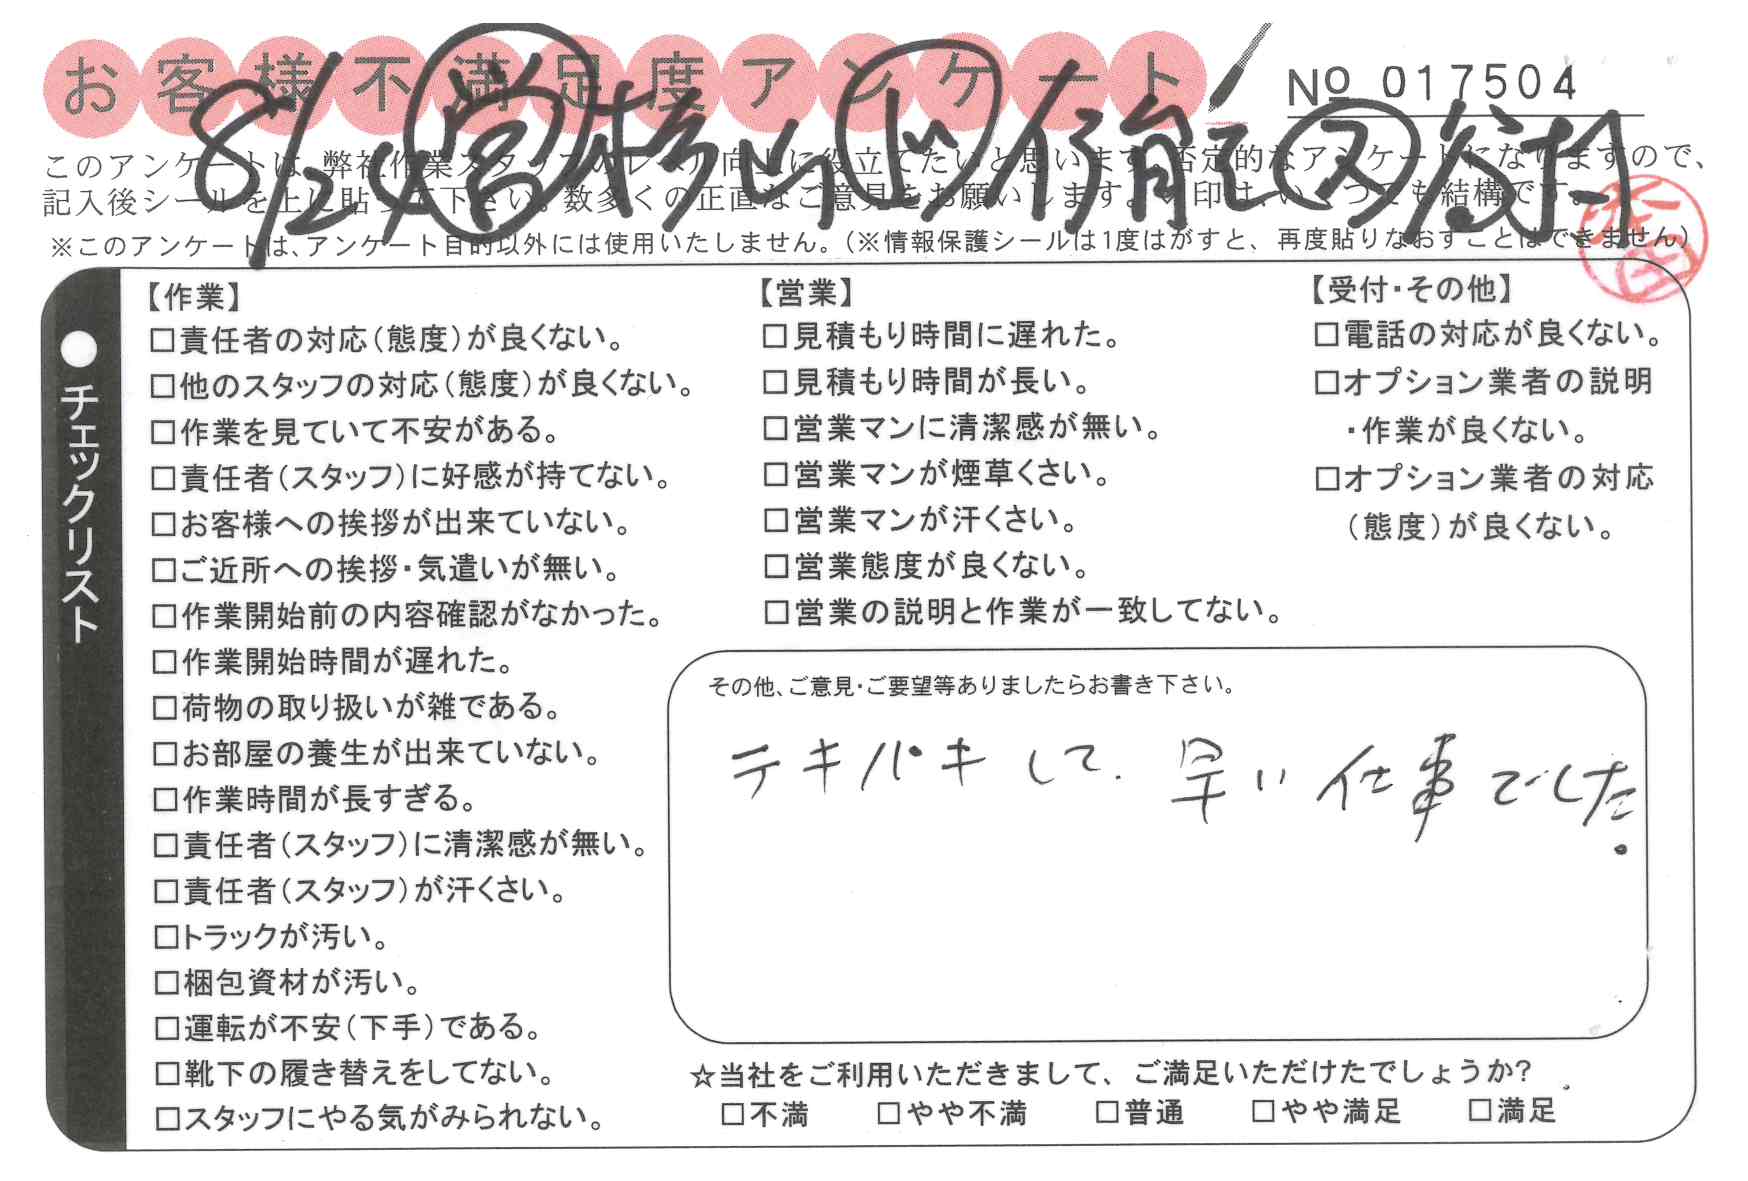 お客様不満足度アンケート
№ 017504
8/24 営 横山 ド 存能 ス 谷村
このアンケートは、弊社作業スタッフのレベル向上に役立てたいと思います。否定的なアンケートになりますので、
記入後シールを上に貼って下さい。数多くの正直なご意見をお願いします。✓印は、いくつでも結構です。
※このアンケートは、アンケート目的以外には使用いたしません。(※情報保護シールは1度はがすと、再度貼りなおすことはできません)
●チェックリスト
【作業】
□責任者の対応(態度)が良くない。
□他のスタッフの対応(態度)が良くない。
□作業を見ていて不安がある。
□責任者(スタッフ)に好感が持てない。
□お客様への挨拶が出来ていない。
□ご近所への挨拶・気遣いが無い。
□作業開始前の内容確認がなかった。
□作業開始時間が遅れた。
□荷物の取り扱いが雑である。
□お部屋の養生が出来ていない。
□作業時間が長すぎる。
□責任者(スタッフ)に清潔感が無い。
□責任者(スタッフ)が汗くさい。
□トラックが汚い。
□梱包資材が汚い。
□運転が不安(下手)である。
□靴下の履き替えをしてない。
□スタッフにやる気がみられない。
【営業】
□見積もり時間に遅れた。
□見積もり時間が長い。
□営業マンに清潔感が無い。
□営業マンが煙草くさい。
□営業マンが汗くさい。
□営業態度が良くない。
□営業の説明と作業が一致してない。
【受付・その他】
□電話の対応が良くない。
□オプション業者の説明
・作業が良くない。
□オプション業者の対応
(態度)が良くない。
その他、ご意見・ご要望等ありましたらお書き下さい。
テキパキして、早い仕事でした。
☆当社をご利用いただきまして、ご満足いただけたでしょうか?
□不満 □やや不満 □普通 □やや満足 □満足